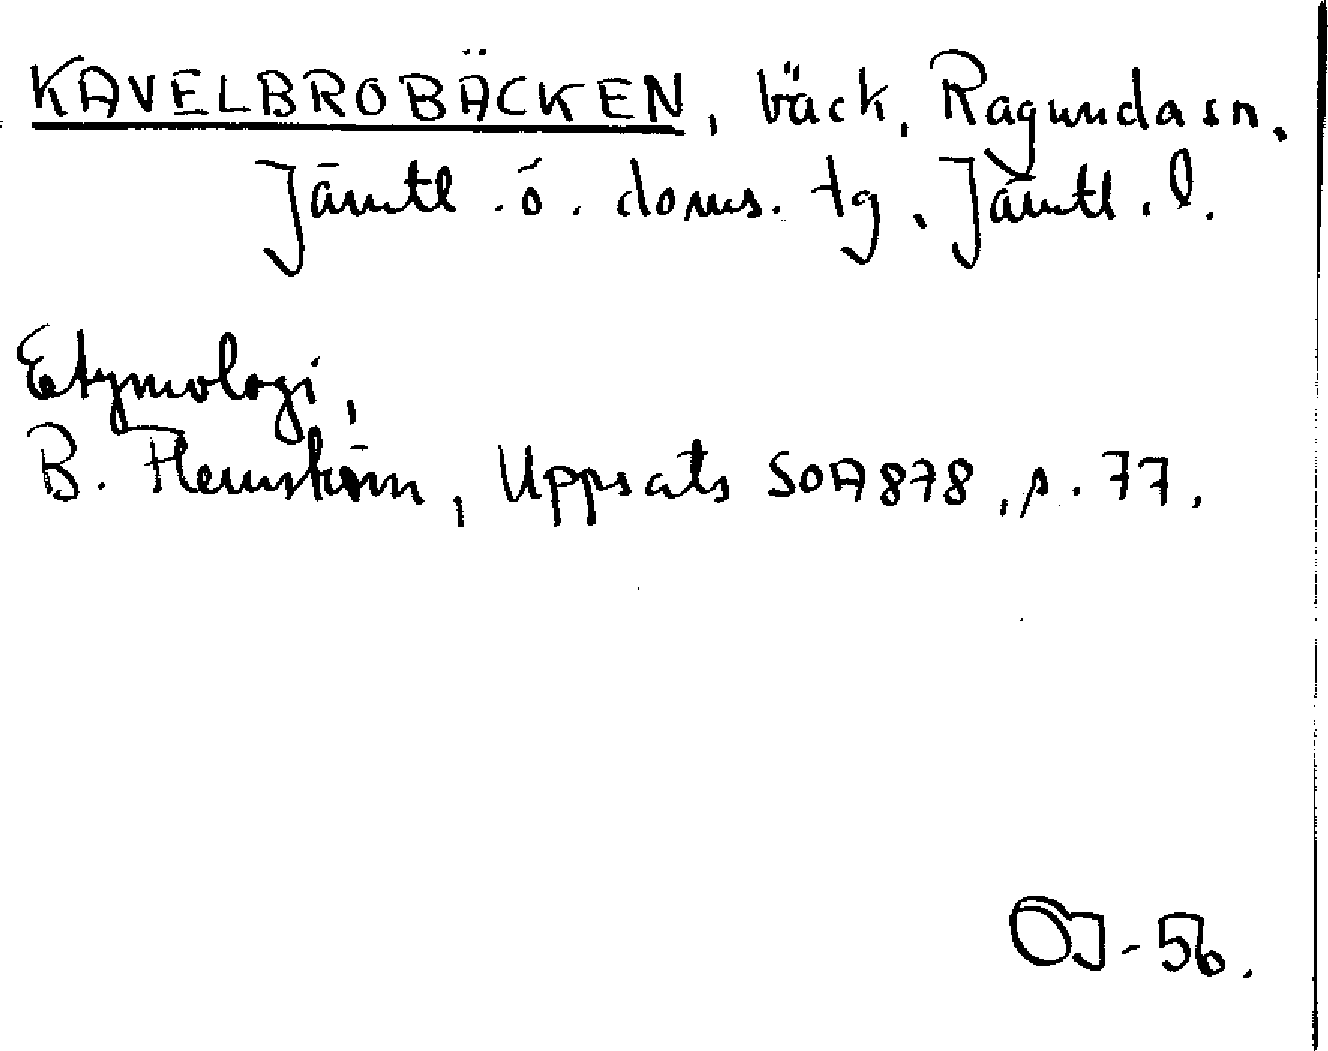 KAVELBROBÄCKEN, bäck, Ragunda sn,
Jämtl. ö. doms. tg, Jämtl. l.
Etymologi,
B. Flemström, Uppsats SOA 878, s. 77.
OJ-56.